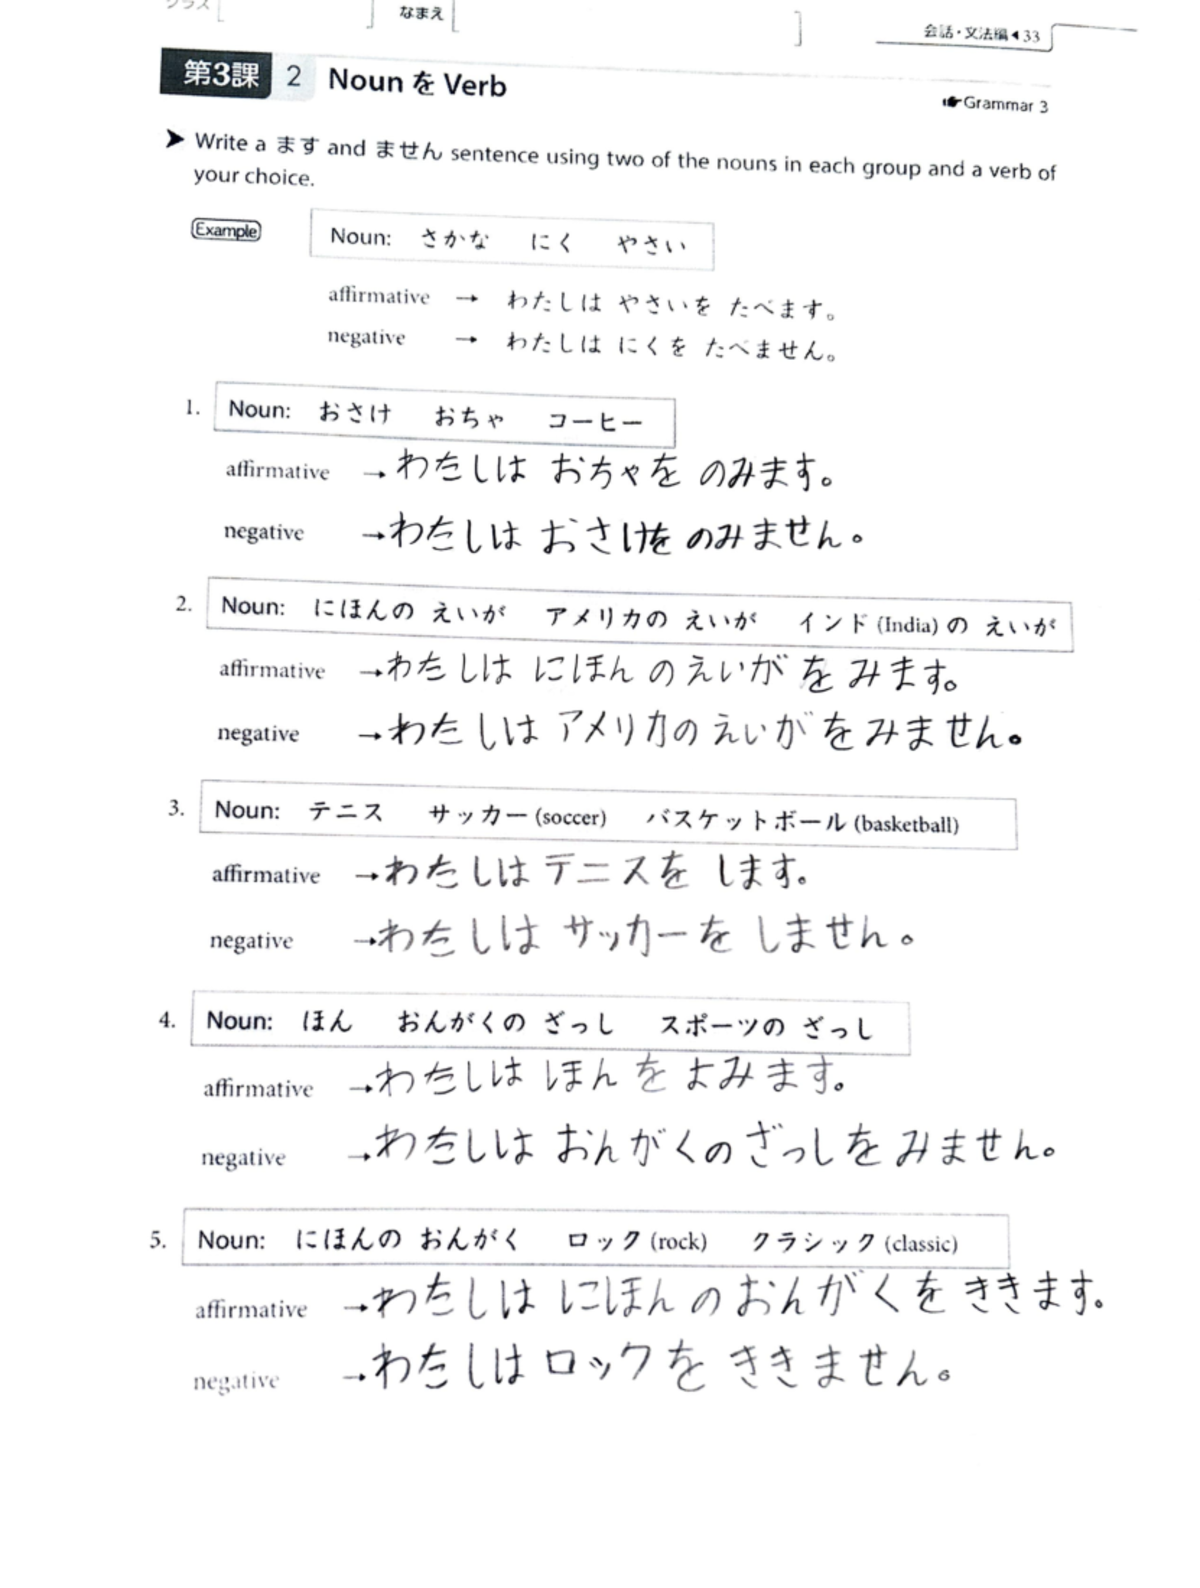 クラス
なまえ
会話・文法編◀33
第3課 2 Noun を Verb
☛Grammar 3
➤ Write a ます and ません sentence using two of the nouns in each group and a verb of
your choice.
Example Noun: さかな にく やさい
affirmative → わたしは やさいを たべます。
negative → わたしは にくを たべません。
1. Noun: おさけ おちゃ コーヒー
affirmative →わたしは おちゃを のみます。
negative →わたしは おさけを のみません。
2. Noun: にほんの えいが アメリカの えいが インド (India) の えいが
affirmative →わたしは にほんのえいがを みます。
negative →わたしは アメリカのえいがをみません。
3. Noun: テニス サッカー (soccer) バスケットボール (basketball)
affirmative →わたしはテニスを します。
negative →わたしは サッカーを しません。
4. Noun: ほん おんがくの ざっし スポーツの ざっし
affirmative →わたしは ほんを よみます。
negative →わたしは おんがくのざっしを みません。
5. Noun: にほんの おんがく ロック (rock) クラシック (classic)
affirmative →わたしは にほんのおんがくを ききます。
negative →わたしはロックを ききません。